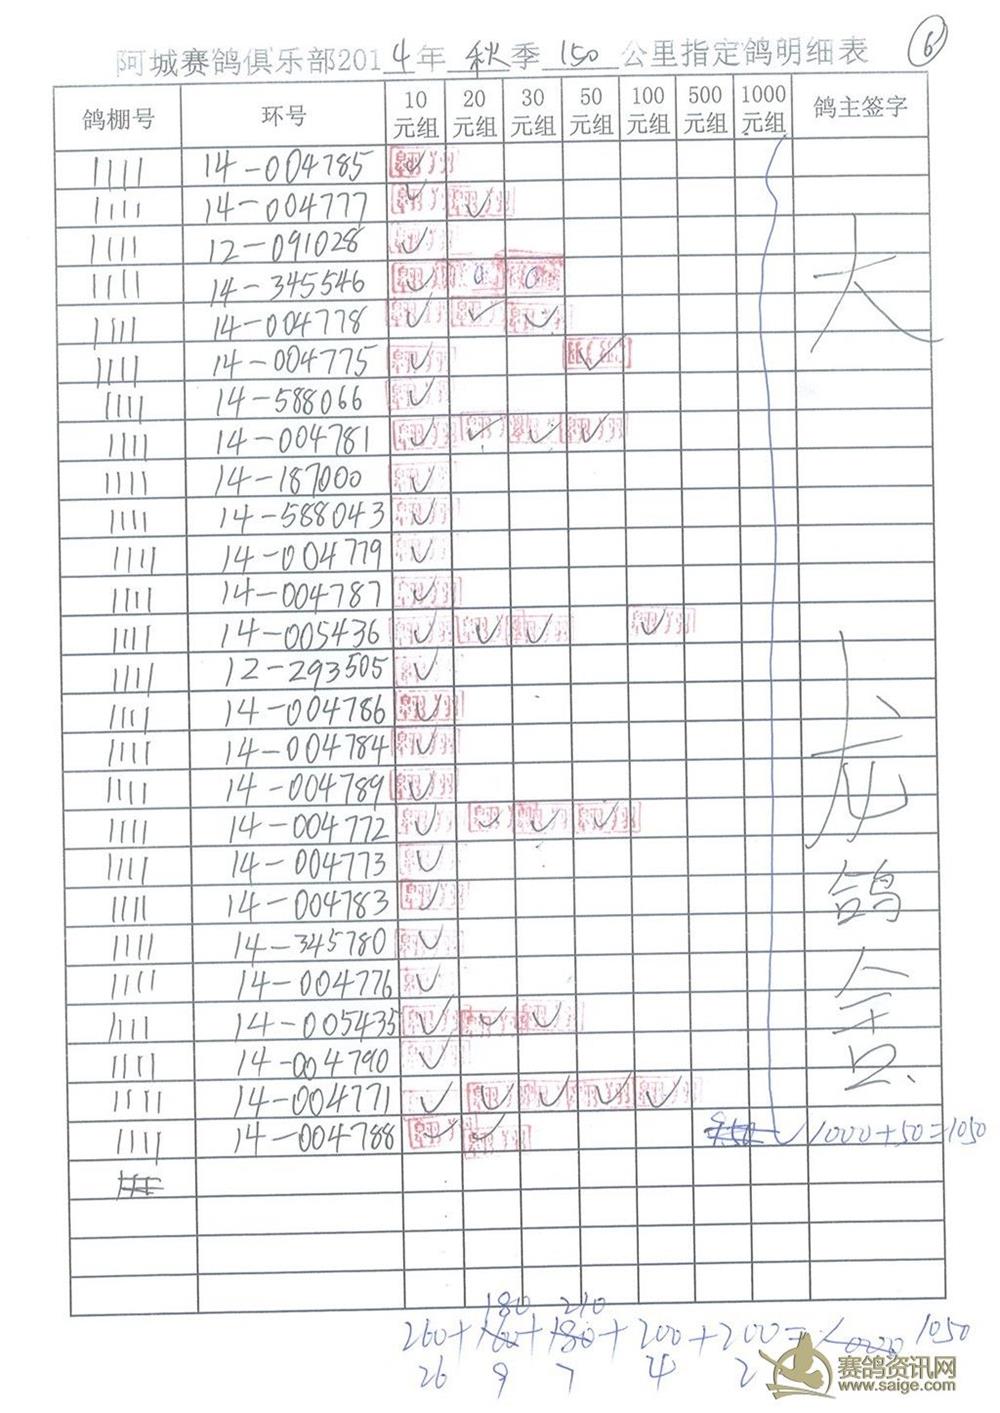 ⑥
阿城赛鸽俱乐部2014年 秋 季 150 公里指定鸽明细表
鸽棚号 环号 10元组 20元组 30元组 50元组 100元组 500元组 1000元组 鸽主签字
1111 14-004785 ✓
1111 14-004777 ✓ ✓
1111 12-091028 ✓
1111 14-345546 ✓ 0 0
1111 14-004778 ✓ ✓ ✓
1111 14-004775 ✓ ✓
1111 14-588066 ✓
1111 14-004781 ✓ ✓ ✓ ✓
1111 14-187000 ✓
1111 14-588043 ✓
1111 14-004779 ✓
1111 14-004787 ✓
1111 14-005436 ✓ ✓ ✓ ✓
1111 12-293505 ✓
1111 14-004786 ✓
1111 14-004784 ✓
1111 14-004789 ✓
1111 14-004772 ✓ ✓ ✓ ✓
1111 14-004773 ✓
1111 14-004783 ✓
1111 14-345780 ✓
1111 14-004776 ✓
1111 14-005435 ✓ ✓ ✓
1111 14-004790 ✓
1111 14-004771 ✓ ✓ ✓ ✓ ✓
1111 14-004788 ✓ ✓ 1000+50=1050
天龙鸽舍
180 210
260+160+180+200+200= 1050
26 9 7 4 2
赛鸽资讯网
www.saige.com